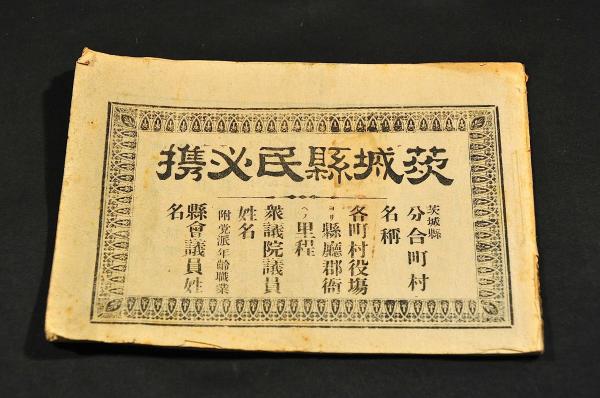 茨城縣民必携
茨城縣
分合町村
名稱
各町村役場
ヨリ縣廳郡衙
ヘノ里程
衆議院議員
姓名
附党派年齢職業
縣會議員姓
名